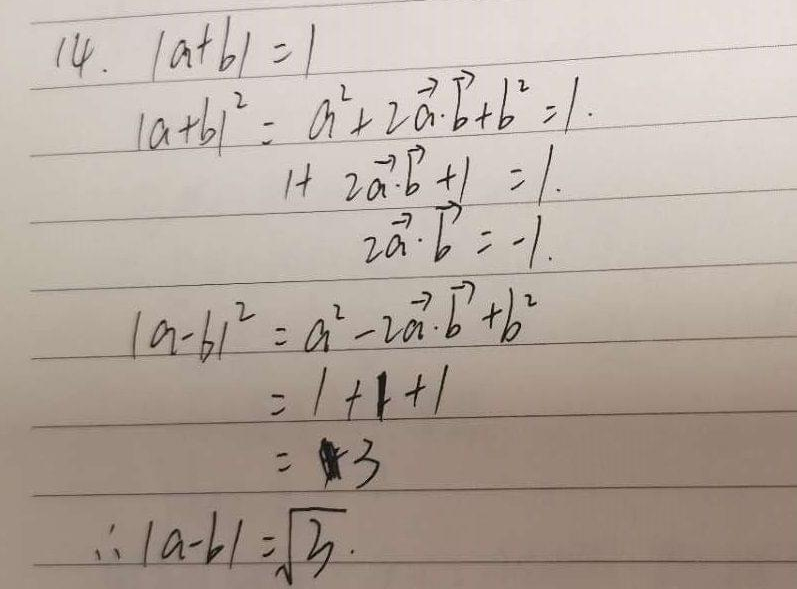 14. |a+b| = 1
|a+b|² = a² + 2a⃗·b⃗ + b² = 1.
1 + 2a⃗·b⃗ + 1 = 1.
2a⃗·b⃗ = -1.
|a-b|² = a² - 2a⃗·b⃗ + b²
= 1 + 1 + 1
= 3
∴ |a-b| = √3.